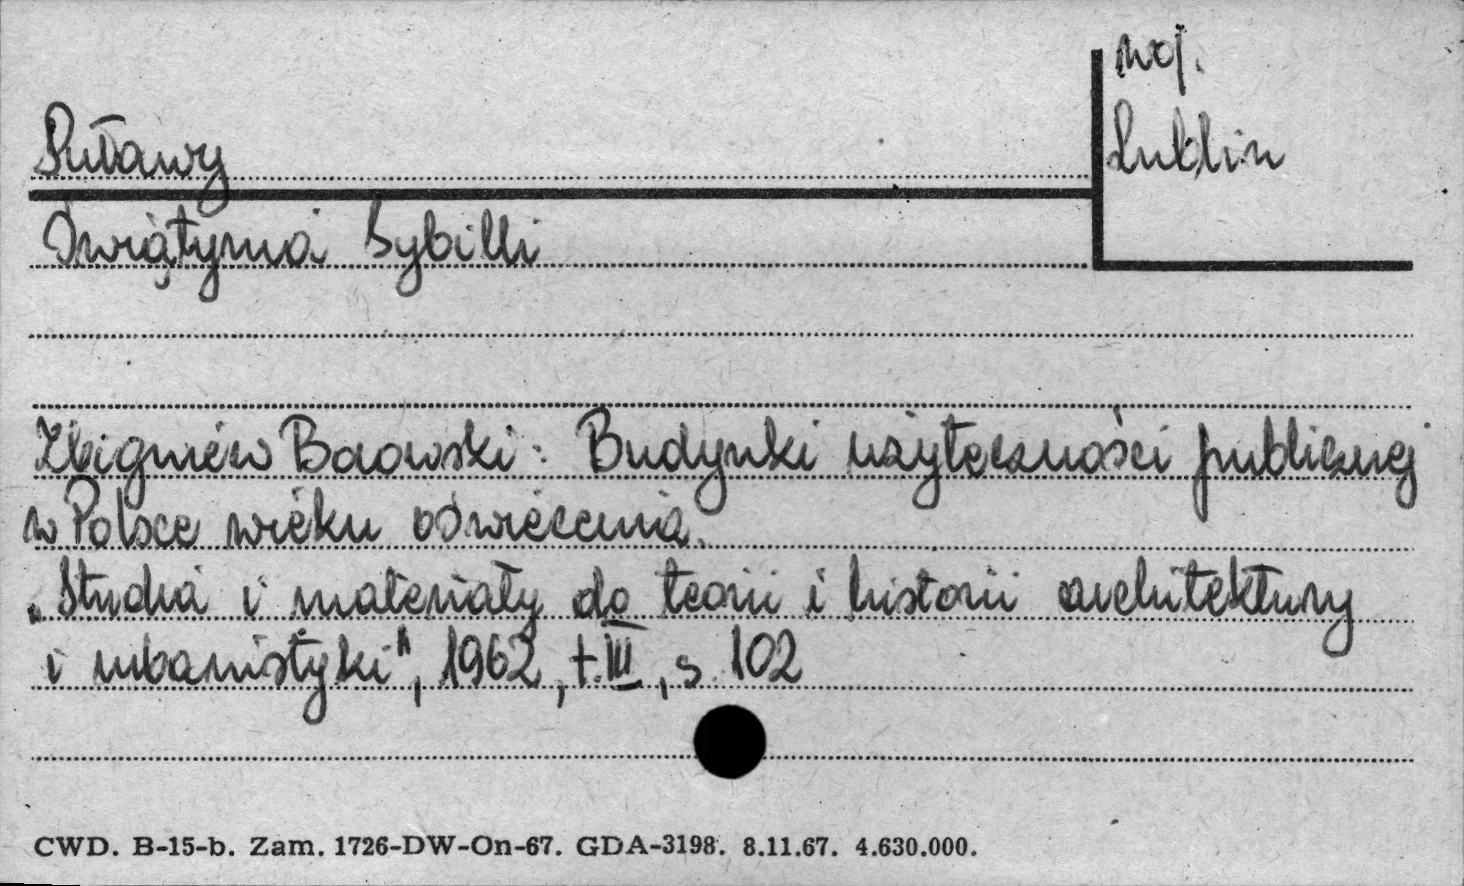 woj.
Lublin
Puławy
Świątynia Sybilli
Zbigniew Baowski: Budynki użyteczności publicznej
w Polsce wieku oświecenia.
„Studia i materiały do teorii i historii architektury
i urbanistyki", 1962, t. III, s. 102
CWD. B-15-b. Zam. 1726-DW-On-67. GDA-3198. 8.11.67. 4.630.000.